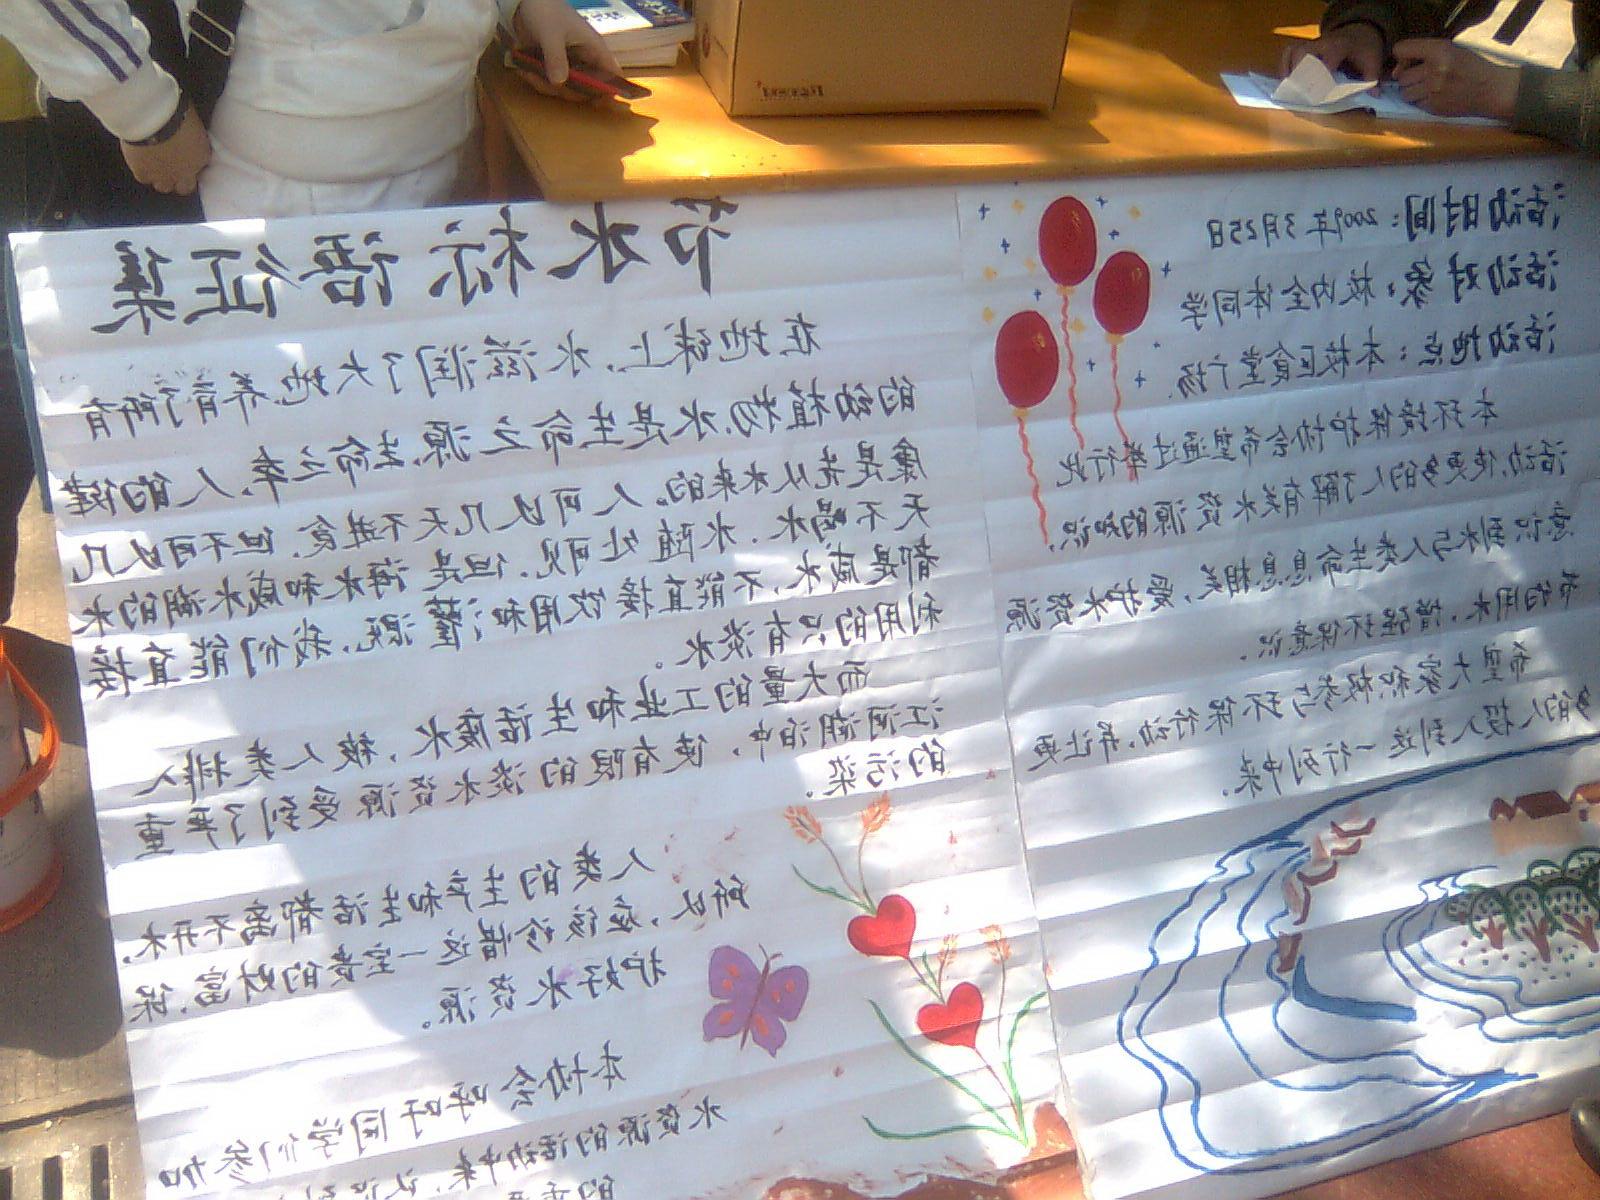 节水标语征集
在地球上,水滋润了大地,养育了所有
的动植物.水是生命之源,生命之本,人的健
康是先从水来的。人可以几天不进食,但不可以几
天不喝水.水随处可见.但是海水和咸水湖的水
都是咸水,不能直接饮用和灌溉,我们能直接
利用的只有淡水。
而大量的工业和生活废水,被人类排入
江河湖泊中,使有限的淡水资源受到了严重
的污染。
人类的生产和生活都离不开水,
所以,应该珍惜这一宝贵的财富,保
护好水资源。
本协会呼吁同学们参加
水资源的活动中来,认识到
活动时间:2009年3月25日
活动对象:校内全体同学
活动地点:本校区食堂广场.
本环境保护协会希望通过举行此
活动,使更多的人了解有关水资源的知识,
意识到水与人类生命息息相关,爱护水资源
节约用水,增强环保意识.
希望大家积极参与环保行动,并让更
多的人投入到这一行列中来.